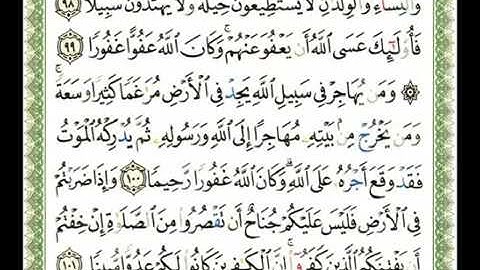 وَٱلنِّسَآءِ وَٱلْوِلْدَٰنِ لَا يَسْتَطِيعُونَ حِيلَةً وَلَا يَهْتَدُونَ سَبِيلًا ٩٨
فَأُو۟لَٰٓئِكَ عَسَى ٱللَّهُ أَن يَعْفُوَ عَنْهُمْ ۚ وَكَانَ ٱللَّهُ عَفُوًّا غَفُورًا ٩٩
۞ وَمَن يُهَاجِرْ فِى سَبِيلِ ٱللَّهِ يَجِدْ فِى ٱلْأَرْضِ مُرَٰغَمًا كَثِيرًا وَسَعَةً ۚ
وَمَن يَخْرُجْ مِنۢ بَيْتِهِۦ مُهَاجِرًا إِلَى ٱللَّهِ وَرَسُولِهِۦ ثُمَّ يُدْرِكْهُ ٱلْمَوْتُ
فَقَدْ وَقَعَ أَجْرُهُۥ عَلَى ٱللَّهِ ۗ وَكَانَ ٱللَّهُ غَفُورًا رَّحِيمًا ١٠٠ وَإِذَا ضَرَبْتُمْ
فِى ٱلْأَرْضِ فَلَيْسَ عَلَيْكُمْ جُنَاحٌ أَن تَقْصُرُوا۟ مِنَ ٱلصَّلَوٰةِ إِنْ خِفْتُمْ
أَن يَفْتِنَكُمُ ٱلَّذِينَ كَفَرُوٓا۟ ۚ إِنَّ ٱلْكَٰفِرِينَ كَانُوا۟ لَكُمْ عَدُوًّا مُّبِينًا ١٠١